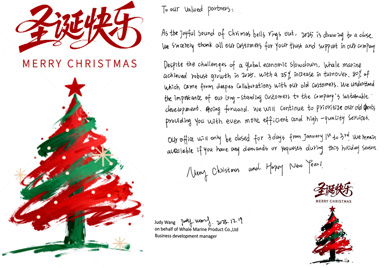 圣诞快乐
MERRY CHRISTMAS
To our valued partners,
As the joyful sound of Christmas bells rings out, 2025 is drawing to a close.
We sincerely thank all our customers for your trust and support in our company
Despite the challenges of a global economic slowdown, whale marine
achieved robust growth in 2025, with a 25% increase in turnover, 80% of
which came from deeper collaborations with our old customers. We understand
the importance of our long-standing customers to the company's sustainable
development. Going forward, we will continue to prioritize our old clients,
providing you with even more efficient and high-quality services.
Our office will only be closed for 3 days from January 1st to 3rd. We remain
available if you have any demands or requests during this holiday season
Merry Christmas and Happy New Year!
Judy Wang Judy wang 2025.12.19
on behalf of Whale Marine Product Co.,Ltd
Business development manager
圣诞快乐
MERRY CHRISTMAS